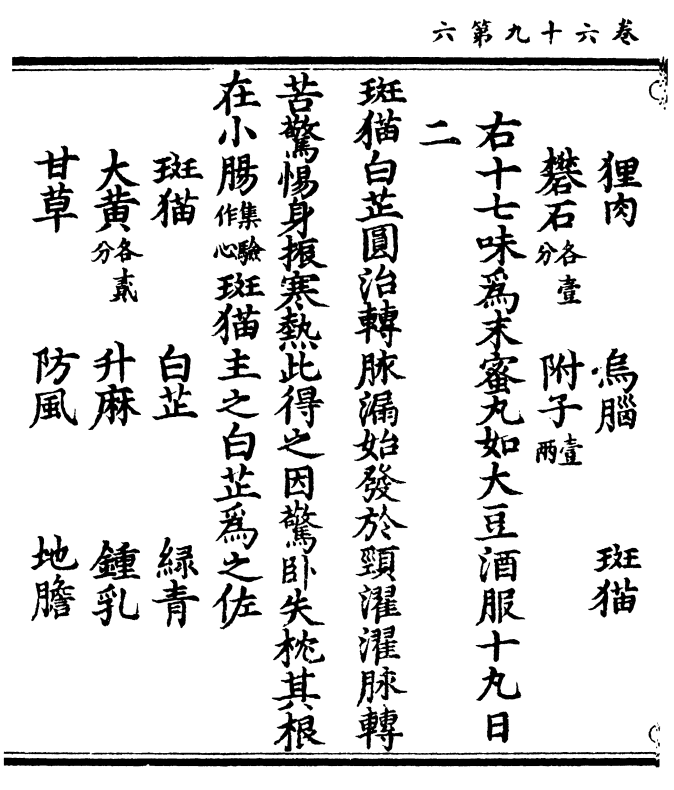 卷六十九第六
狸肉 烏腦 斑猫
礬石各壹分 附子壹兩
右十七味爲末蜜丸如大豆酒服十丸日
二
斑猫白芷圓治轉脉漏始發於頸濯濯脉轉
苦驚惕身振寒熱此得之因驚卧失枕其根
在小腸集驗作心斑猫主之白芷爲之佐
斑猫 白芷 緑青
大黄各貳分 升麻 鍾乳
甘草 防風 地膽